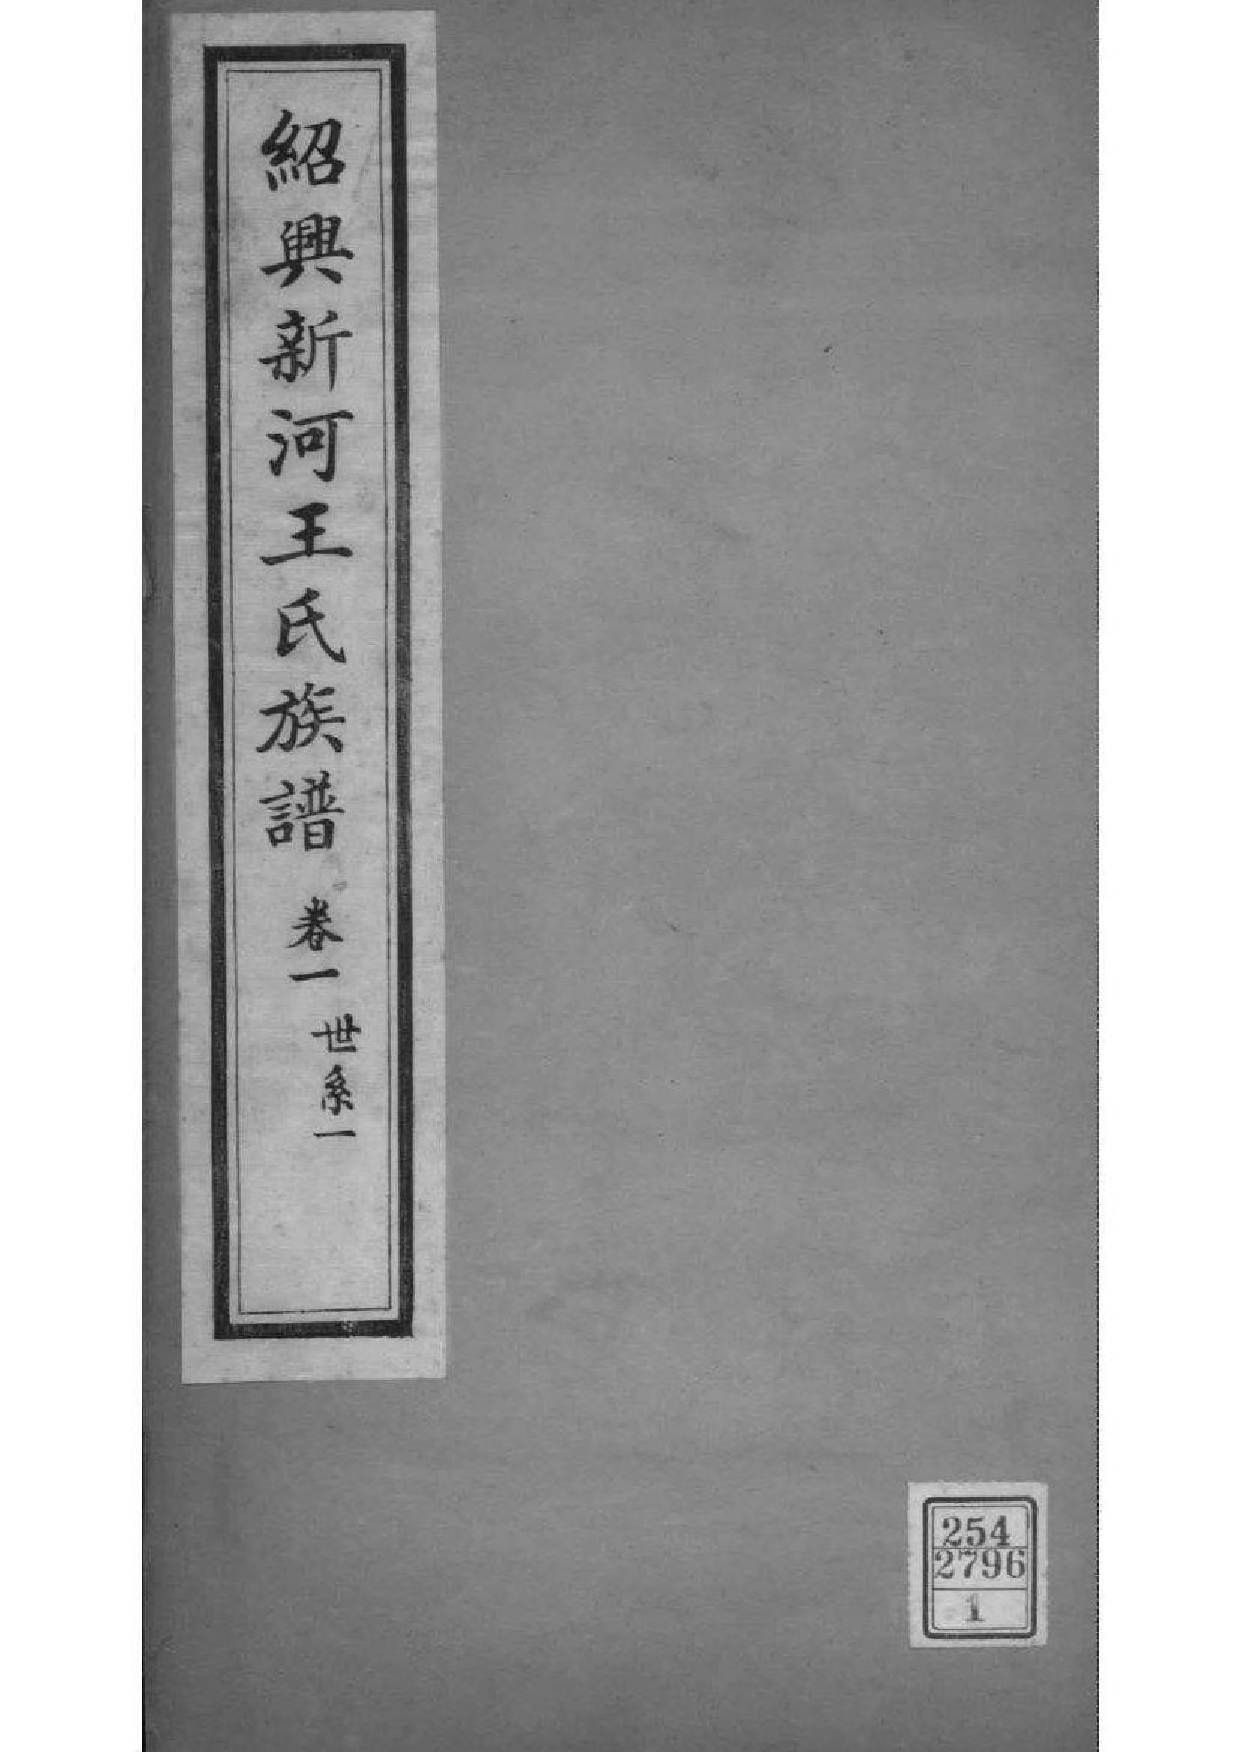 紹興新河王氏族譜 卷一 世系一
254
2796
1